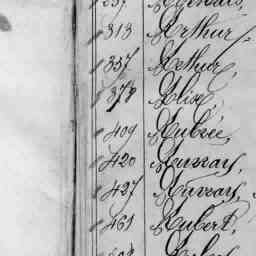 313 Arthur
337 Arthur,
378 Alix,
409 Aubrée,
420 Auvray,
427 Auvray,
461 Aubert,